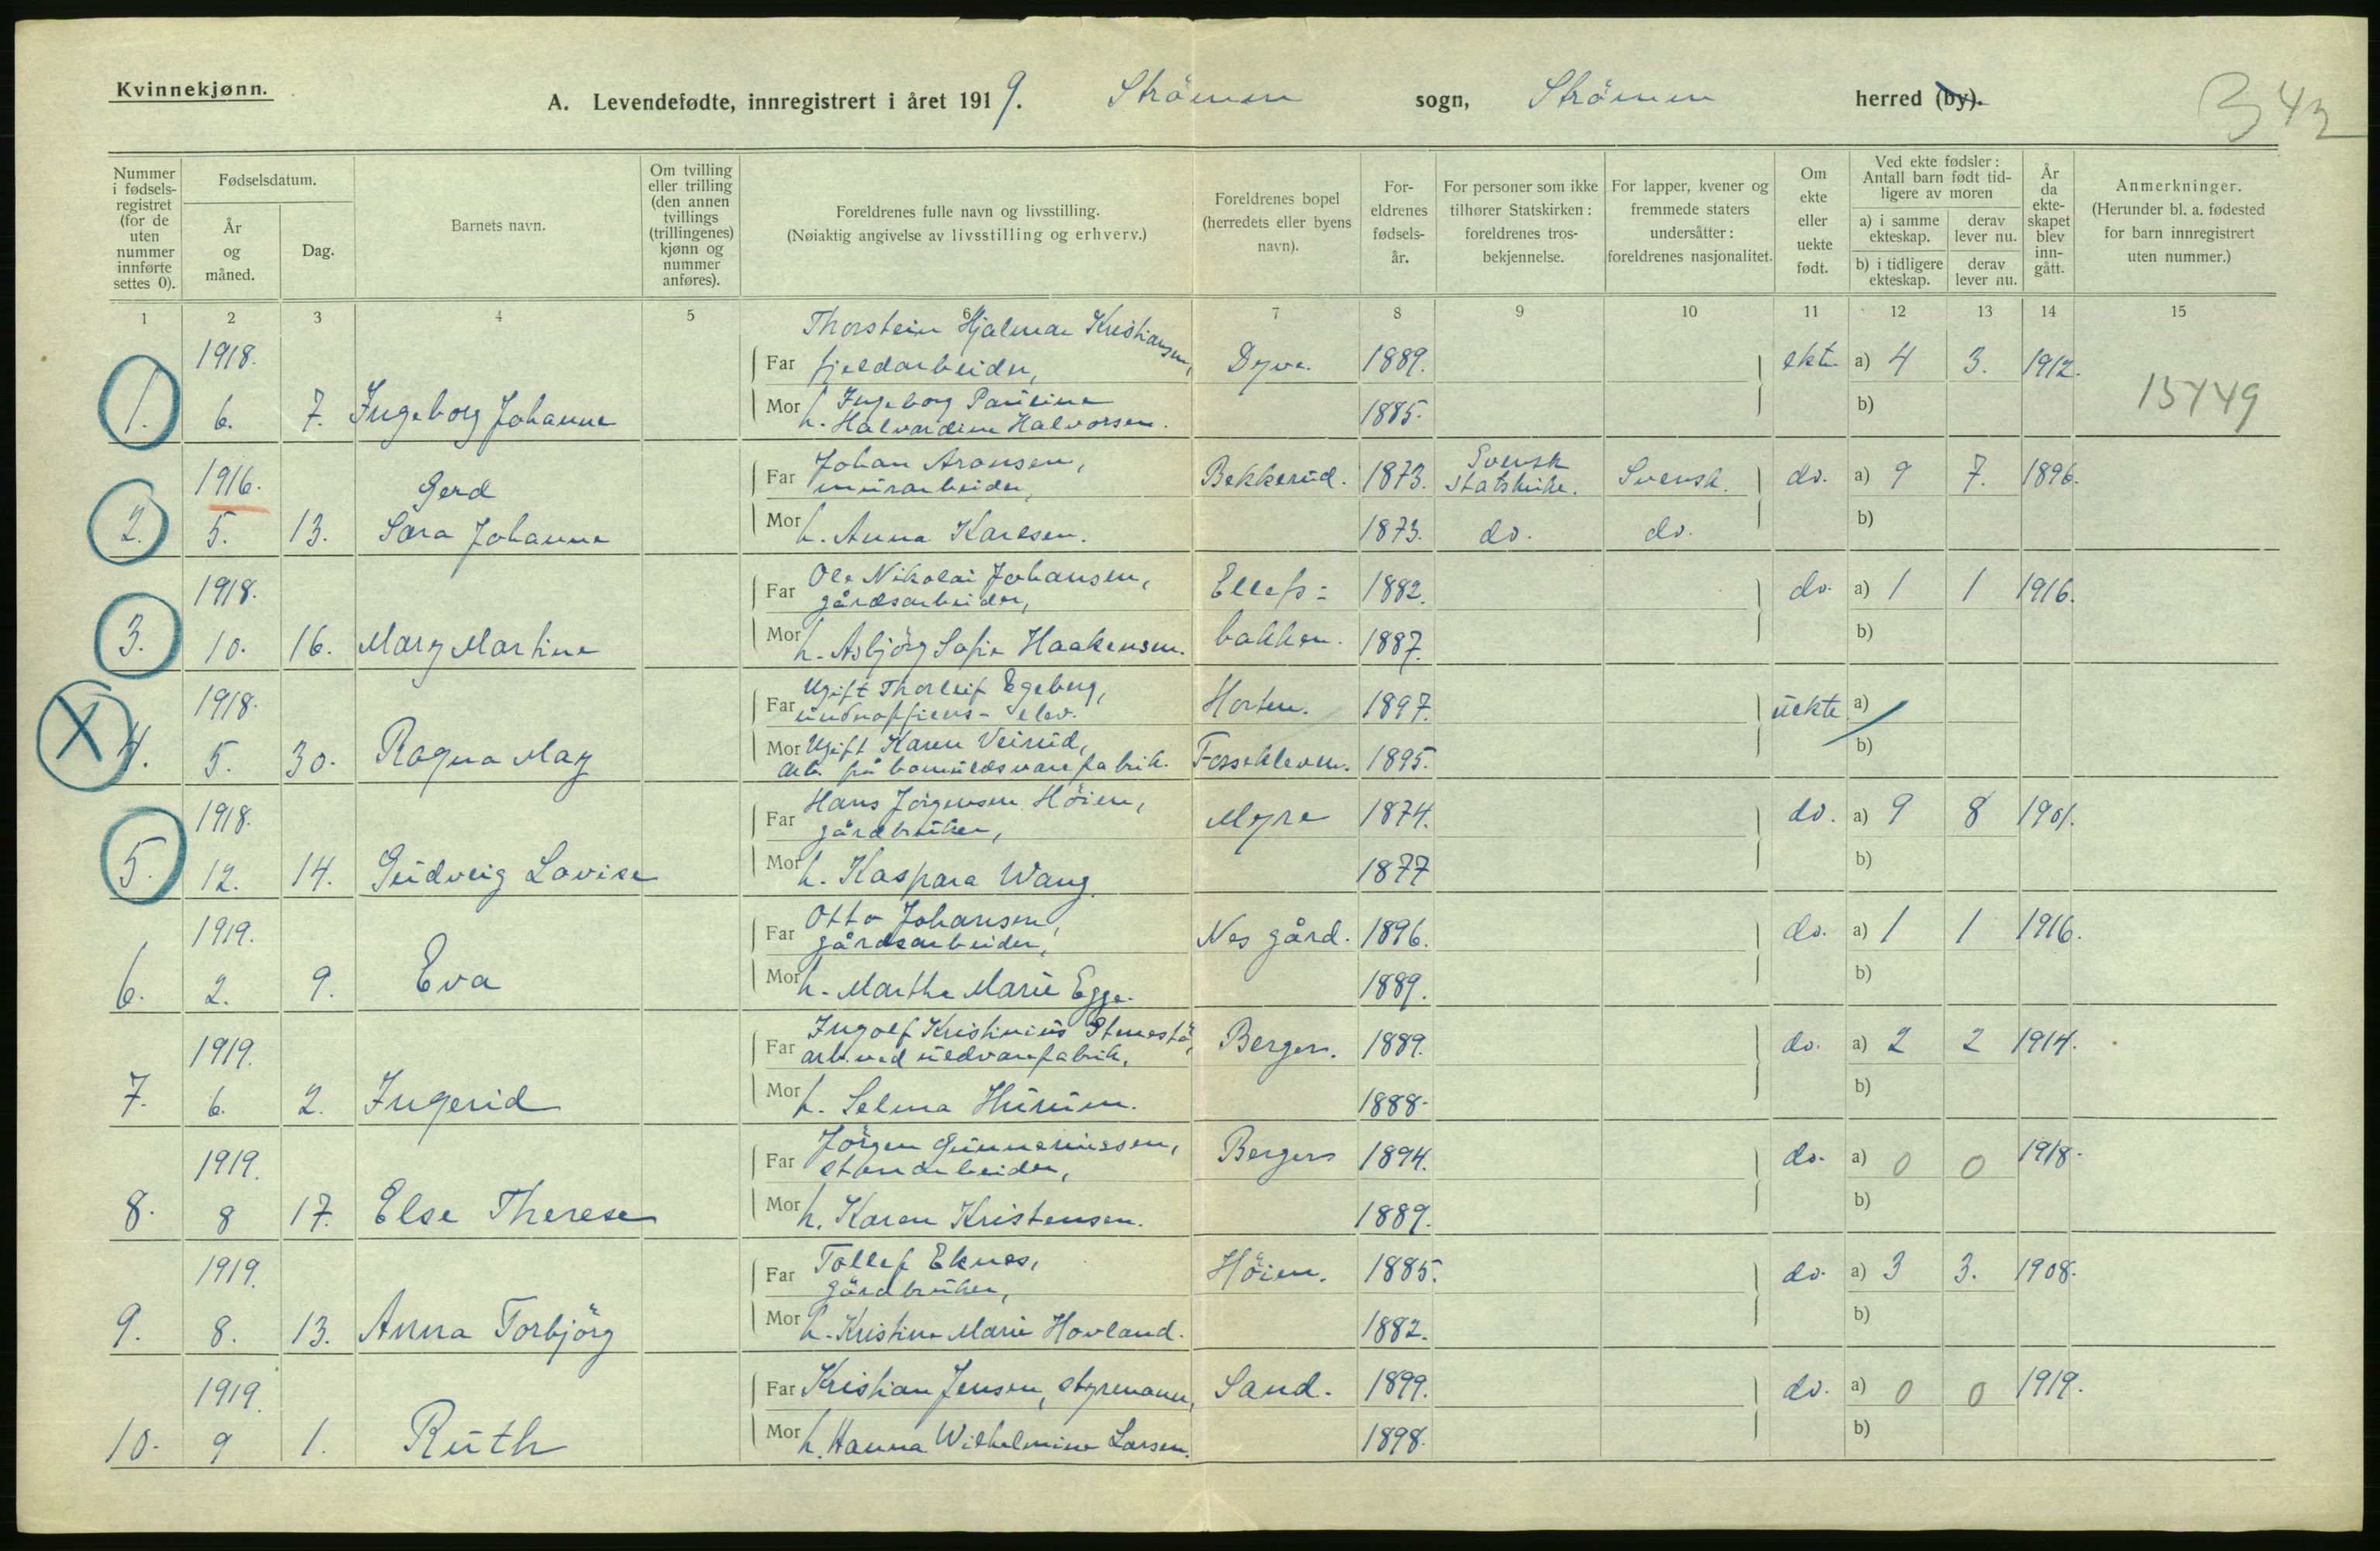 Kvinnekjønn.
A. Levendefødte, innregistrert i året 1919. Strömm sogn, Strömm herred (by).
B 42
Nummer i fødsels-registret (for de uten nummer innførte settes 0).
Fødselsdatum.
År og måned.
Dag.
Barnets navn.
Om tvilling eller trilling (den annen tvillings (trillingenes) kjønn og nummer anføres).
Foreldrenes fulle navn og livsstilling.
(Nøiaktig angivelse av livsstilling og erhverv.)
Foreldrenes bopel (herredets eller byens navn).
For-eldrenes fødsels-år.
For personer som ikke tilhører Statskirken: foreldrenes tros-bekjennelse.
For lapper, kvener og fremmede staters undersåtter: foreldrenes nasjonalitet.
Om ekte eller uekte født.
Ved ekte fødsler: Antall barn født tid-ligere av moren
a) i samme ekteskap.
derav lever nu.
b) i tidligere ekteskap.
derav lever nu.
År da ekte-skapet blev inn-gått.
Anmerkninger.
(Herunder bl. a. fødested for barn innregistrert uten nummer.)
1 2 3 4 5 6 7 8 9 10 11 12 13 14 15
1918. Far Thorstein Hjalmar Kristiansen, fjeldarbeider, Dyve. 1889. ekte a) 4 3. 1912.
1. 6. 7. Ingeborg Johanne Mor h. Ingeborg Pauline Halvardine Halvorsen. 1885. b) 15449
1916. Gerd Far Johan Aronsen, murarbeider, Bekkerud. 1873. Svensk Statskirke. Svensk. do. a) 9 7. 1896.
2. 5. 13. Sara Johanne Mor h. Anna Karlsen. 1873. do. do. b)
1918. Far Ole Nikolai Johansen, gårdsarbeider, Ellefs- 1882. do. a) 1 1 1916.
3. 10. 16. Mary Martine Mor h. Asbjörg Sofie Haakensen. bakken. 1887. b)
1918. Far Ugift Thorleif Egeberg, underofficers-elev. Horten. 1897. uekte a)
X 4. 5. 30. Ragna May Mor Ugift Karen Veirud, arb. på bomuldsvarefabrik. Fossekleven. 1895. b)
1918. Far Hans Jörgensen Höien, gårdbruker, Myre 1874. do. a) 9 8 1901.
5. 12. 14. Gudveig Lovise Mor h. Kaspara Wang. 1877 b)
1919. Far Otto Johansen, gårdsarbeider, Nes gård. 1896. do. a) 1 1 1916.
6. 2. 9. Eva Mor h. Marthe Marie Egge. 1889. b)
1919. Far Ingolf Kristinius arb. ved uldvarefabrik, Berger. 1889. do. a) 2 2 1914.
7. 6. 2. Ingerid Mor h. Selma Hurum. 1888. b)
1919. Far Jörgen Gunneriussen, stenarbeider, Berger 1894. do. a) 0 0 1918.
8. 8 17. Else Therese Mor h. Karen Kristensen. 1889. b)
1919. Far Tollef Eknes, gårdbruker, Höien. 1885. do. a) 3 3. 1908.
9. 8. 13. Anna Torbjörg Mor h. Kristine Marie Hovland. 1882. b)
1919. Far Kristian Jensen, styrmann, Sand. 1899. do. a) 0 0 1919.
10. 9 1. Ruth Mor h. Hanna Wilhelmine Larsen. 1898. b)